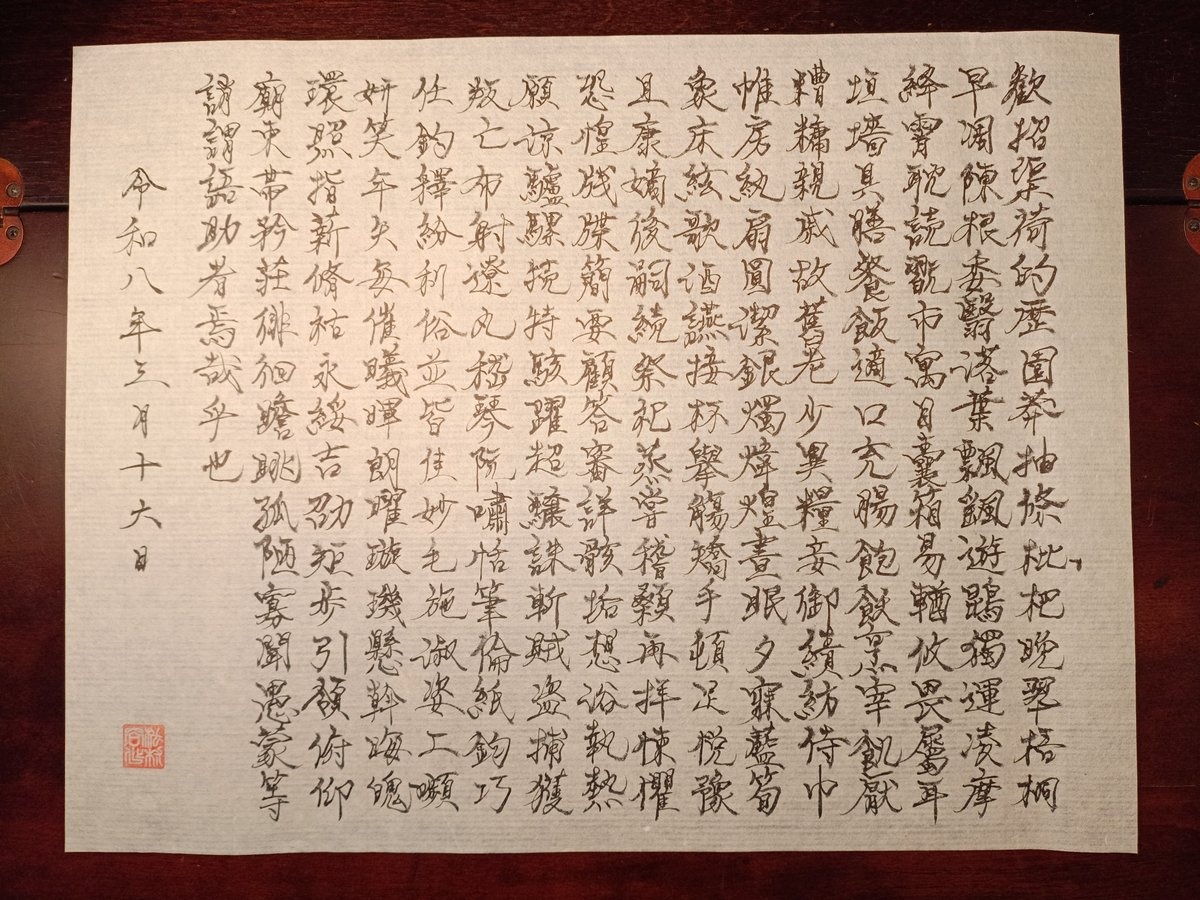 歡招渠荷的歴園莽抽條枇杷晩翠梧桐
早凋陳根委翳落葉飄颻遊鵾獨運凌摩
絳霄耽読翫市寓目嚢箱易輶攸畏屬耳
垣墻具膳飡飯適口充腸飽飫烹宰飢厭
糟糠親戚故舊老少異糧妾御績紡侍巾
帷房紈扇圓潔銀燭煒煌晝眠夕寐藍筍
象床絃歌酒讌接杯擧觴矯手頓足悦豫
且康嫡後嗣続祭祀蒸嘗稽顙再拝悚懼
恐惶牋牒簡要顧答審詳骸垢想浴執熱
願涼驢騾犢特駭躍超驤誅斬賊盗捕獲
叛亡布射遼丸嵇琴阮嘯恬筆倫紙鈞巧
任釣釋紛利俗並皆佳妙毛施淑姿工顰
妍笑年矢毎催曦暉朗曜璇璣懸斡晦魄
環照指薪脩祜永綏吉劭矩歩引領俯仰
廟束帯矜荘徘徊瞻眺孤陋寡聞愚蒙等
誚謂語助者焉哉乎也
令和八年三月十六日